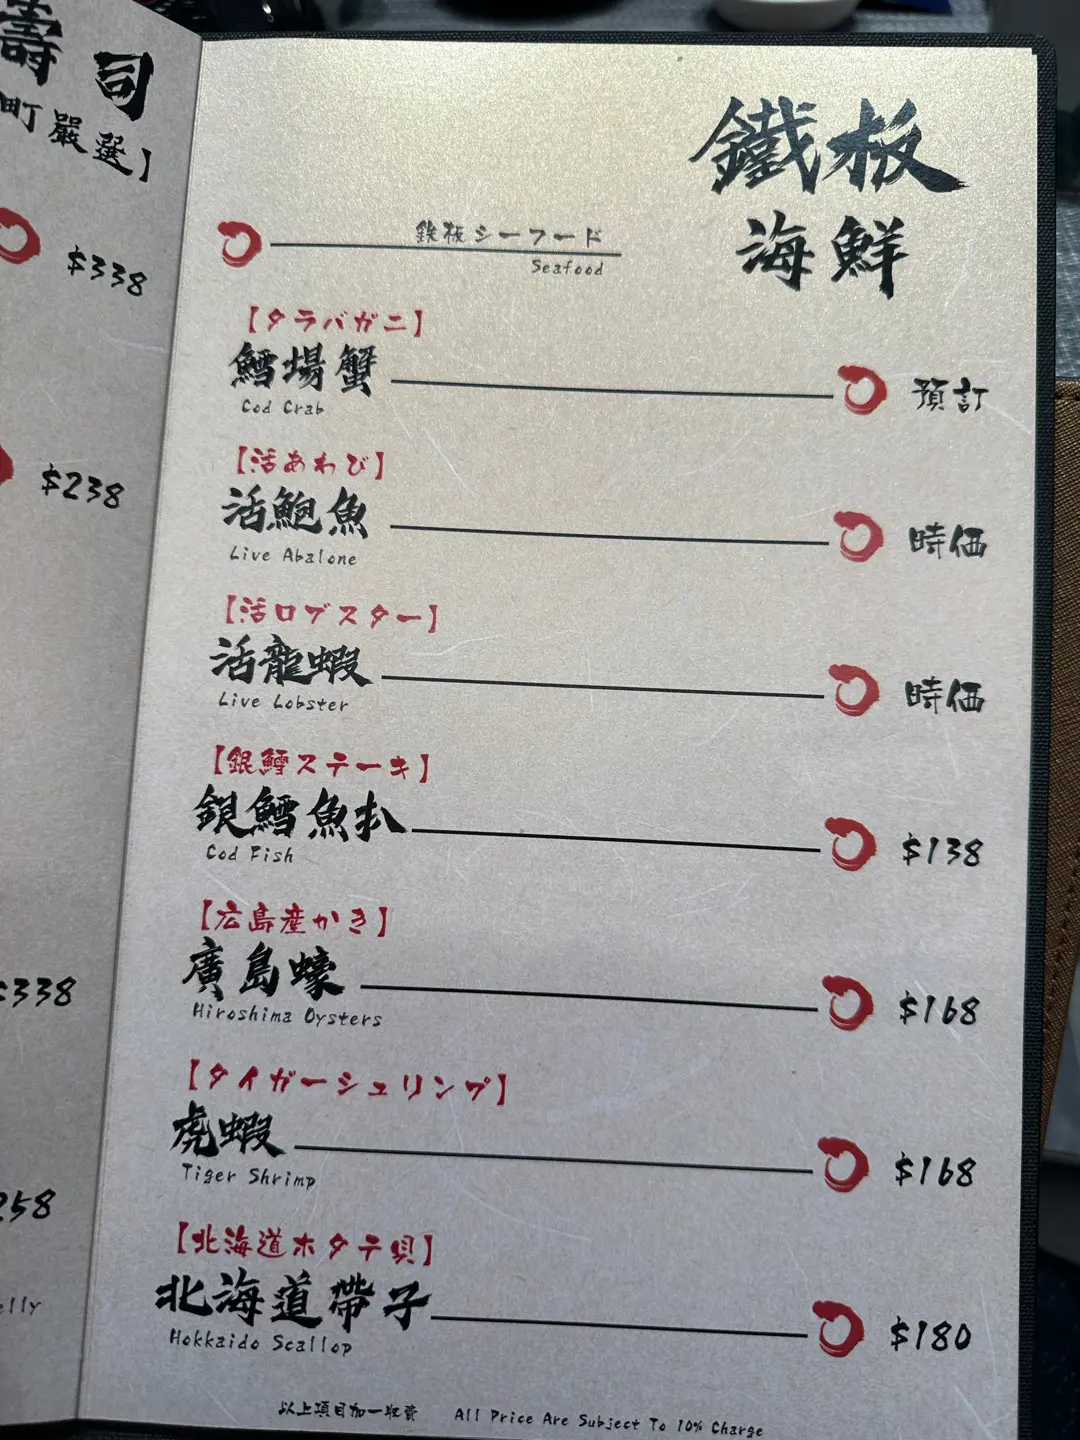 壽司
町嚴選】
$338
$238
$338
258
elly
鐵板
海鮮
鉄板シーフード
Seafood
【タラバガニ】
鱈場蟹
預訂
Cod Crab
【活あわび】
活鮑魚
時価
Live Abalone
【活ロブスター】
活龍蝦
時価
Live Lobster
【銀鱈ステーキ】
銀鱈魚扒
$138
Cod Fish
【広島産かき】
廣島蠔
$168
Hiroshima Oysters
【タイガーシュリンプ】
虎蝦
$168
Tiger Shrimp
【北海道ホタテ貝】
北海道帶子
$180
Hokkaido Scallop
以上項目加一收費 All Price Are Subject To 10% Charge